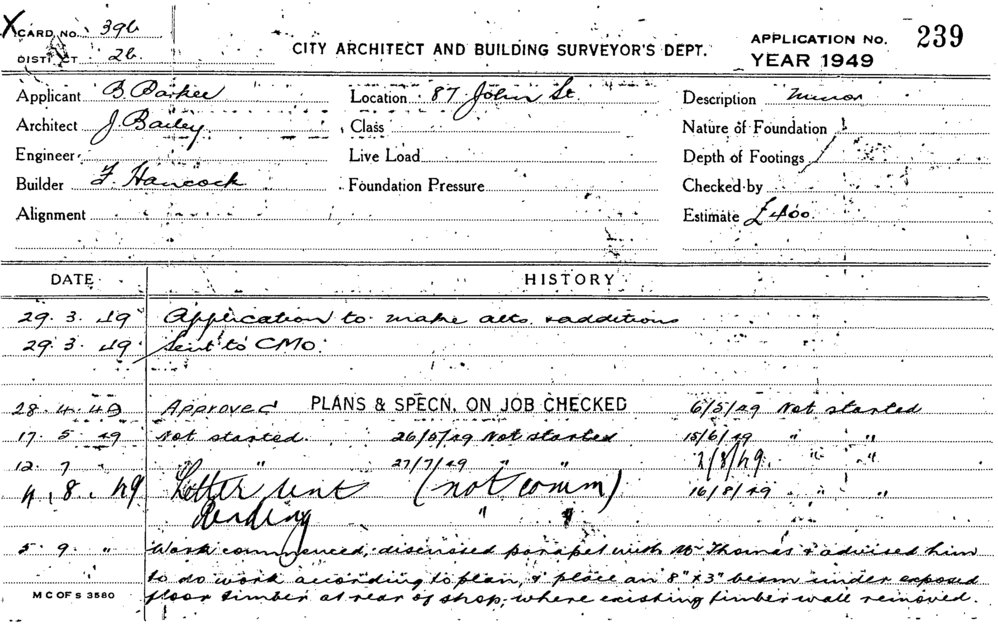 X CARD No. 396
DISTRICT 26.
CITY ARCHITECT AND BUILDING SURVEYOR'S DEPT.
APPLICATION No. 239
YEAR 1949
Applicant B Barker Location 87 John St. Description Minor
Architect J. Bailey Class Nature of Foundation
Engineer Live Load Depth of Footings
Builder F. Hancock Foundation Pressure Checked by
Alignment Estimate £400.
DATE HISTORY
29.3.49 Application to make alts. & additions
29.3.49. Sent to CMO.
28.4.49 Approved PLANS & SPECN. ON JOB CHECKED 6/5/49 Not started
17.5.49 Not started. 26/5/49 Not started 15/6/49 " "
12.7 " " 27/7/49 " " 2/8/49. " "
4.8.49 Letter sent (not comm) 16/8/49 " "
Pending " "
5.9. " Work commenced, discussed parapet with Mr Thomas & advised him
to do work according to plan, & place an 8" x 3" beam under exposed
floor timber at rear of shop, where existing timber wall removed.
M C OF S 3580